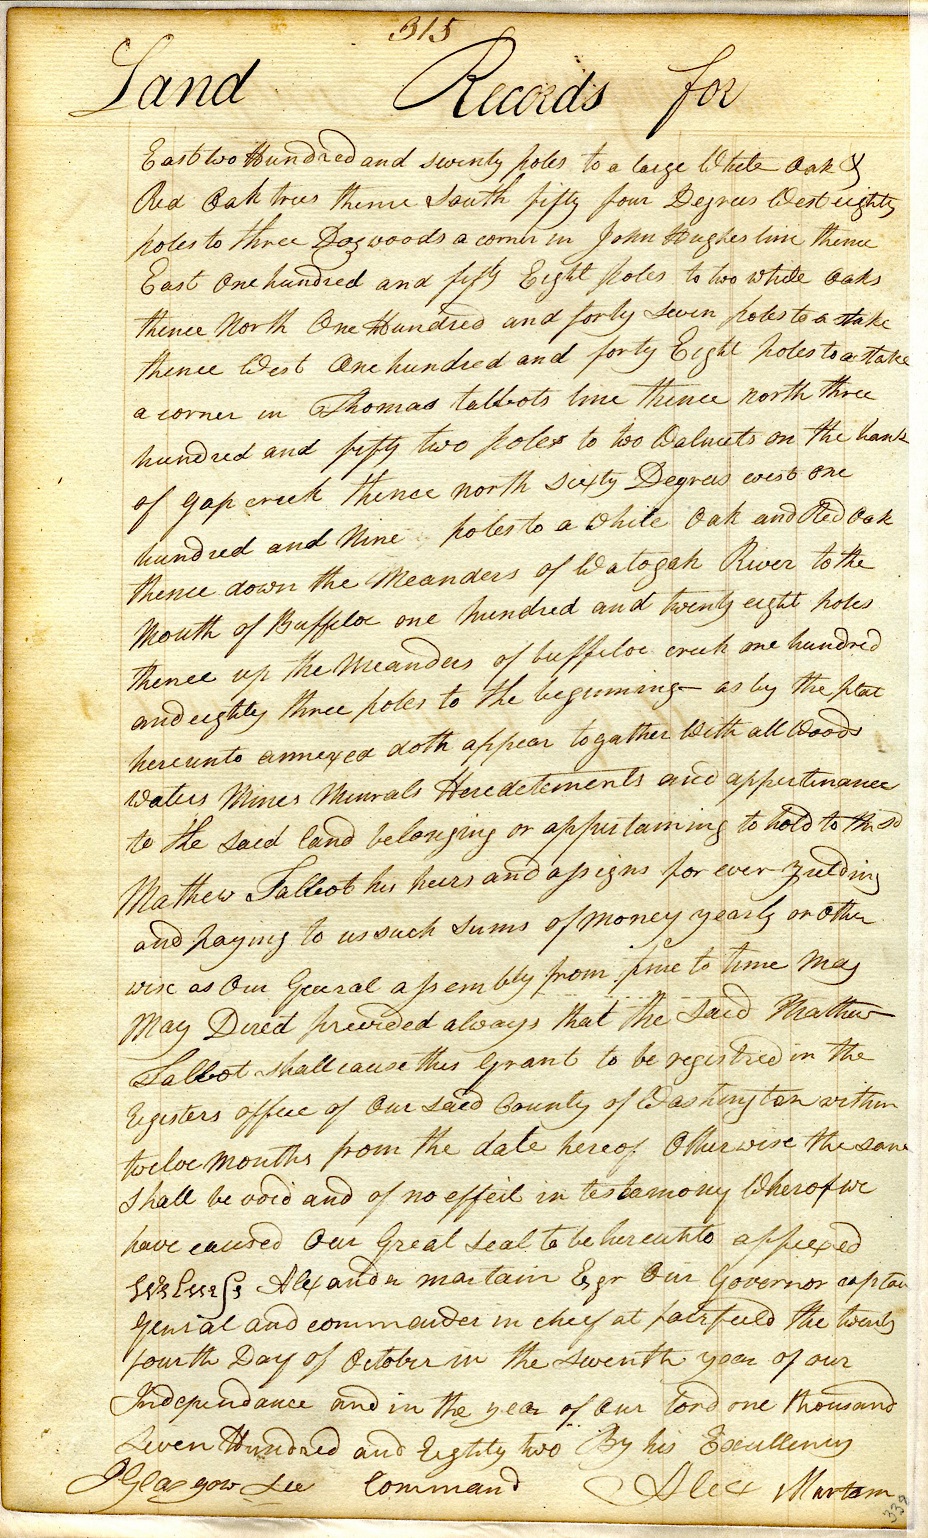 315
Land Records for
East two Hundred and seventy poles to a large White Oak &
Red Oak trees thence South fifty four Degrees West eighty
poles to three Dogwoods a corner in John Hughes line thence
East One hundred and fifty Eight poles to two white Oaks
thence North One Hundred and forty seven poles to a stake
thence West One hundred and forty Eight poles to a stake
a corner in Thomas talbots line thence north three
hundred and fifty two poles to two Walnuts on the bank
of gap creek thence north sixty Degrees west one
hundred and Nine poles to a White Oak and Red Oak
thence down the Meanders of Watogah River to the
Mouth of Buffeloe one hundred and twenty eight poles
thence up the Meanders of buffeloe creek one hundred
and eighty three poles to the beginning as by the plat
hereunto annexed doth appear togather With all Woods
Waters Mines Minrals Heredetements and appertinance
to the said land belonging or appertaining to hold to the sd
Mathew Talbot his heirs and assigns for ever yielding
and paying to us such Sums of money yearly or other
wise as Our General assembly from time to time May
May Direct provided always that the said Mathew
Talbot shall cause this grant to be registred in the
registers office of Our said County of Washington within
twelve Months from the date hereof Otherwise the same
Shall be void and of no effect in testamony Wherof we
have caused Our Great seal to be hereunto affixed
Witness Alexander martain Esqr Our Governor captan
general and commander in cheef at fairfield the twenty
fourth Day of October in the seventh year of our
Independance and in the year of Our Lord one thousand
Seven Hundred and Eighty two By his Excellency
J Glasgow See Command Alex Martam
339